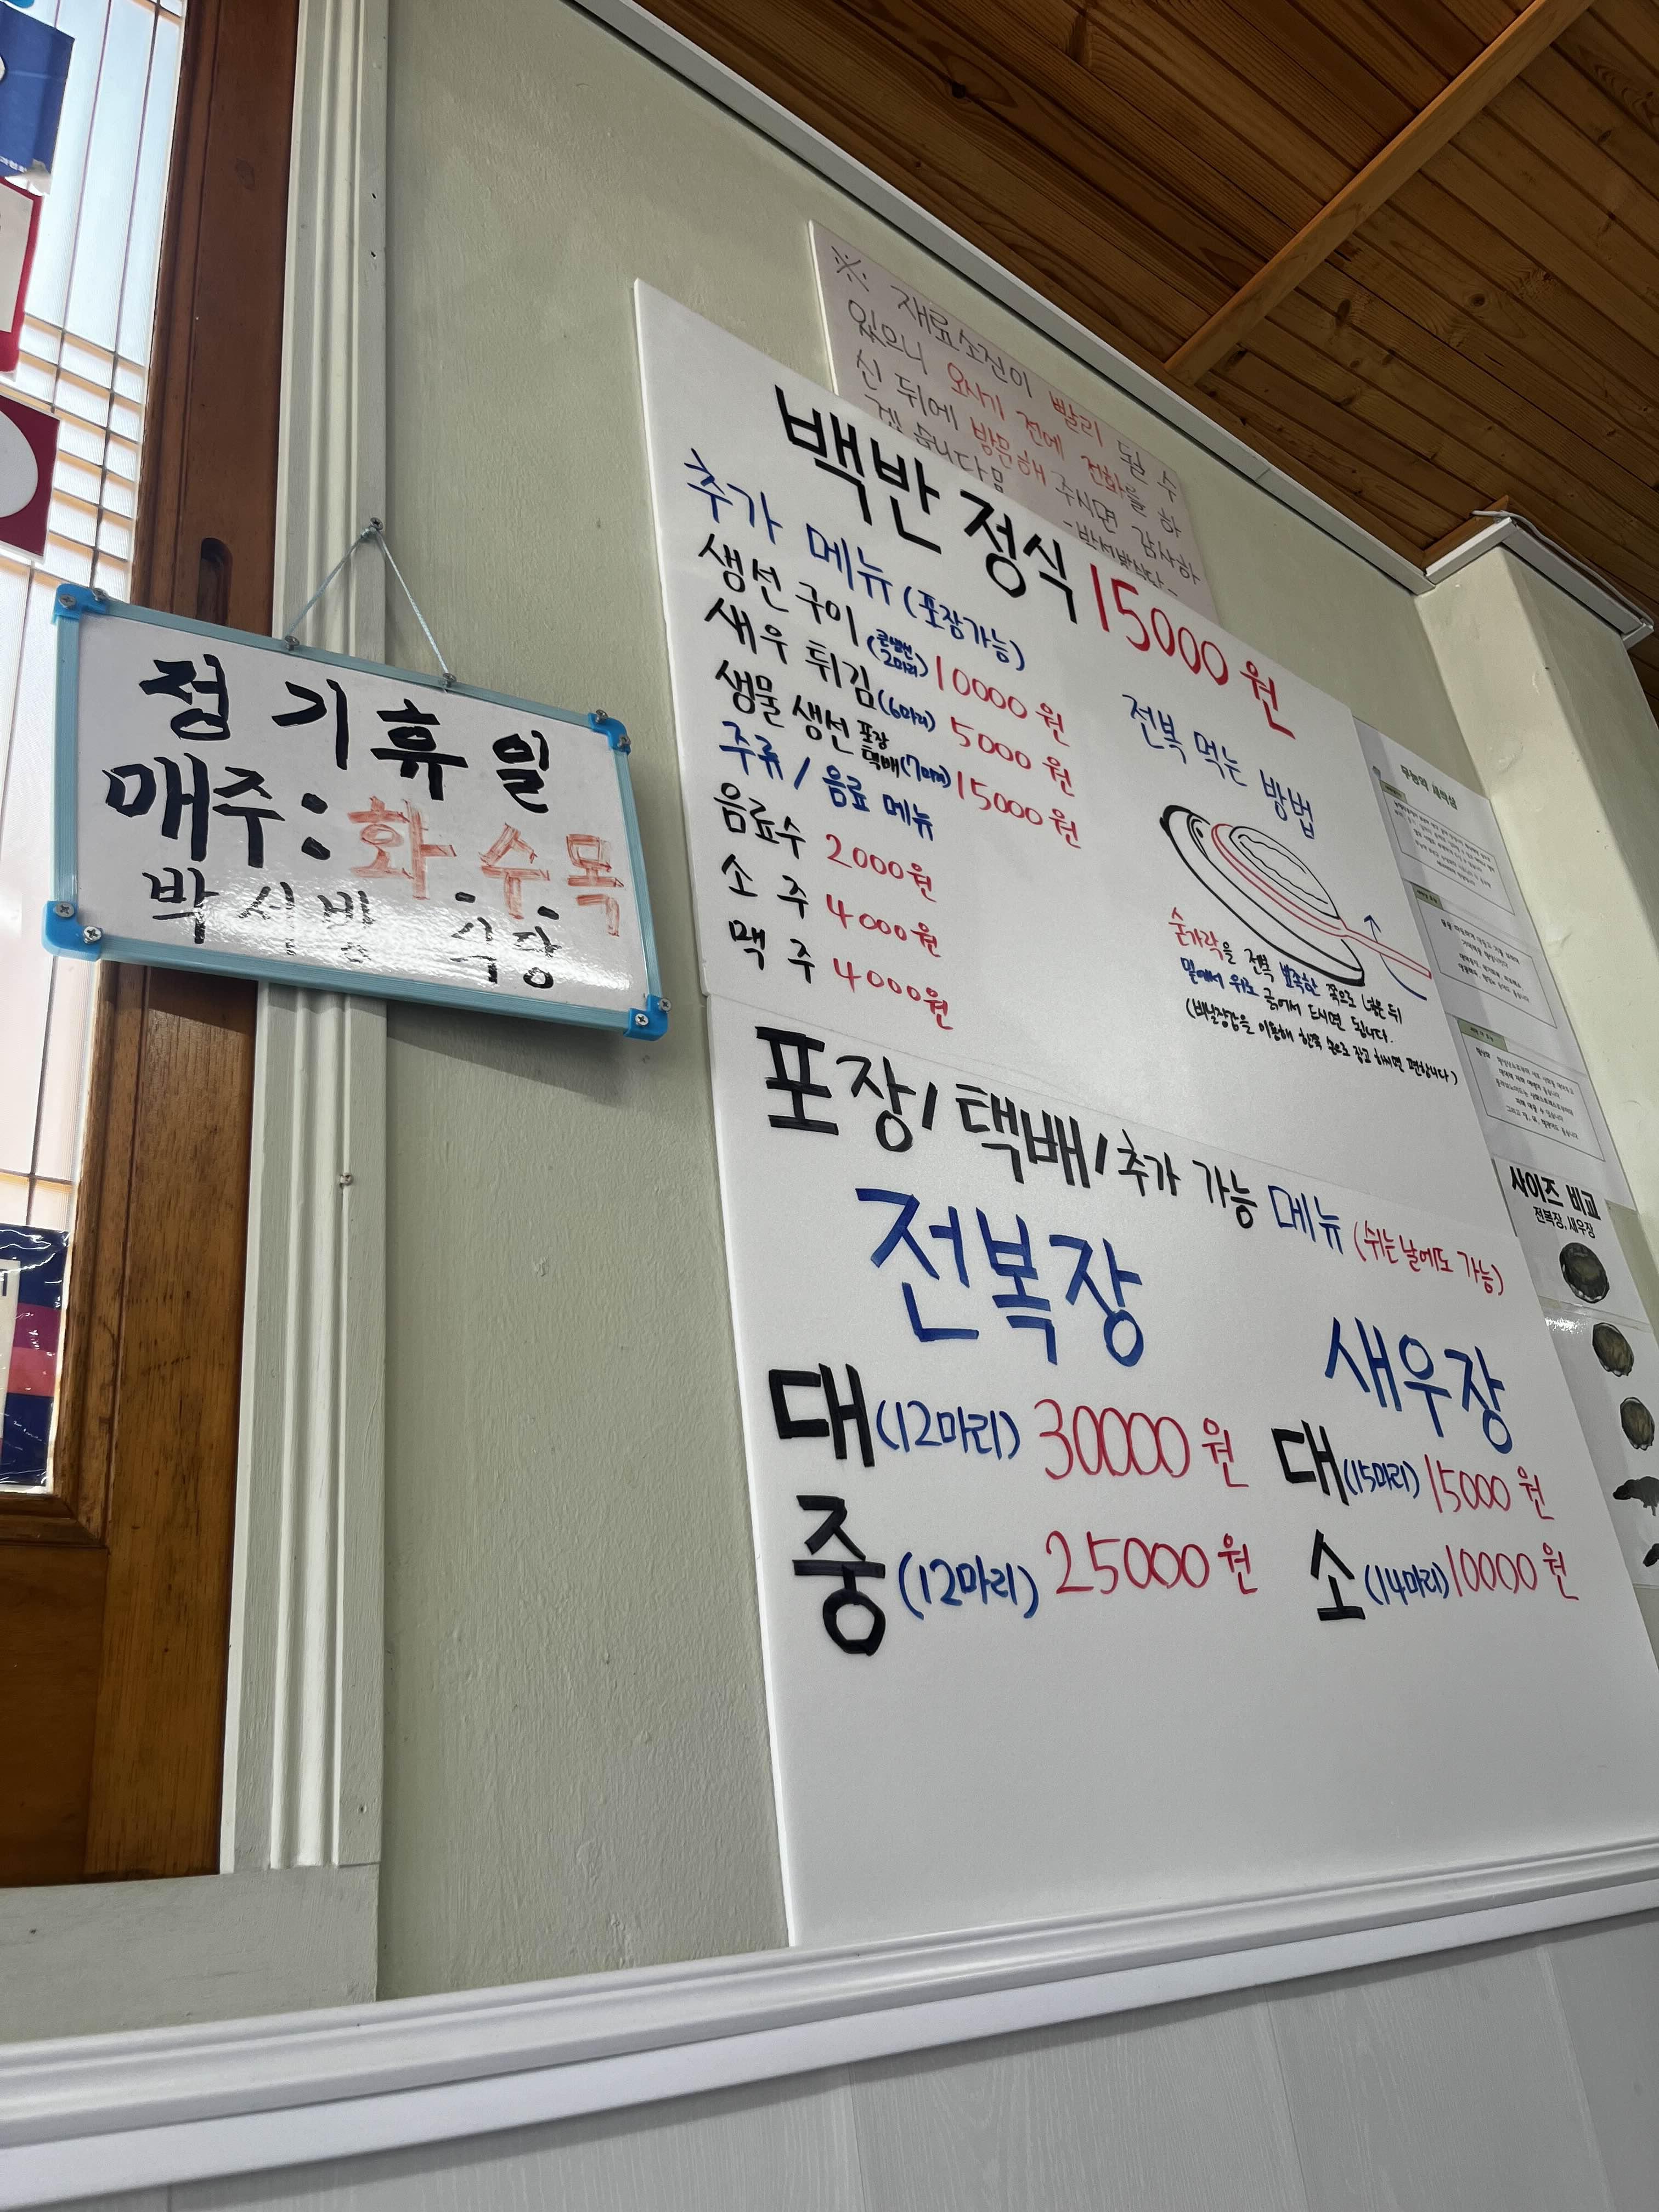 정기휴일
매주: 화.수.목
박서방 식당
※ 재료소진이 빨리 될 수
있으니 오시기 전에 전화를 하
신 뒤에 방문해 주시면 감사하
겠습니다
-박서방식당-
백반 정식 15000원
추가 메뉴 (포장가능)
생선 구이 (큰생선 2마리) 10000원
새우 튀김 (6마리) 5000원
생물 생선 포장 택배 (7마리) 15000원
주류 / 음료 메뉴
음료수 2000원
소주 4000원
맥주 4000원
전복 먹는 방법
숟가락을 전복 뾰족한 쪽으로 넣은 뒤
밑에서 위로 긁어서 드시면 됩니다.
(비닐장갑을 이용해 한쪽 손으로 잡고 하시면 편합니다)
포장/택배/추가 가능 메뉴 (쉬는날에도 가능)
전복장
대 (12마리) 30000원
중 (12마리) 25000원
새우장
대 (15마리) 15000원
소 (14마리) 10000원
사이즈 비교
전복장, 새우장